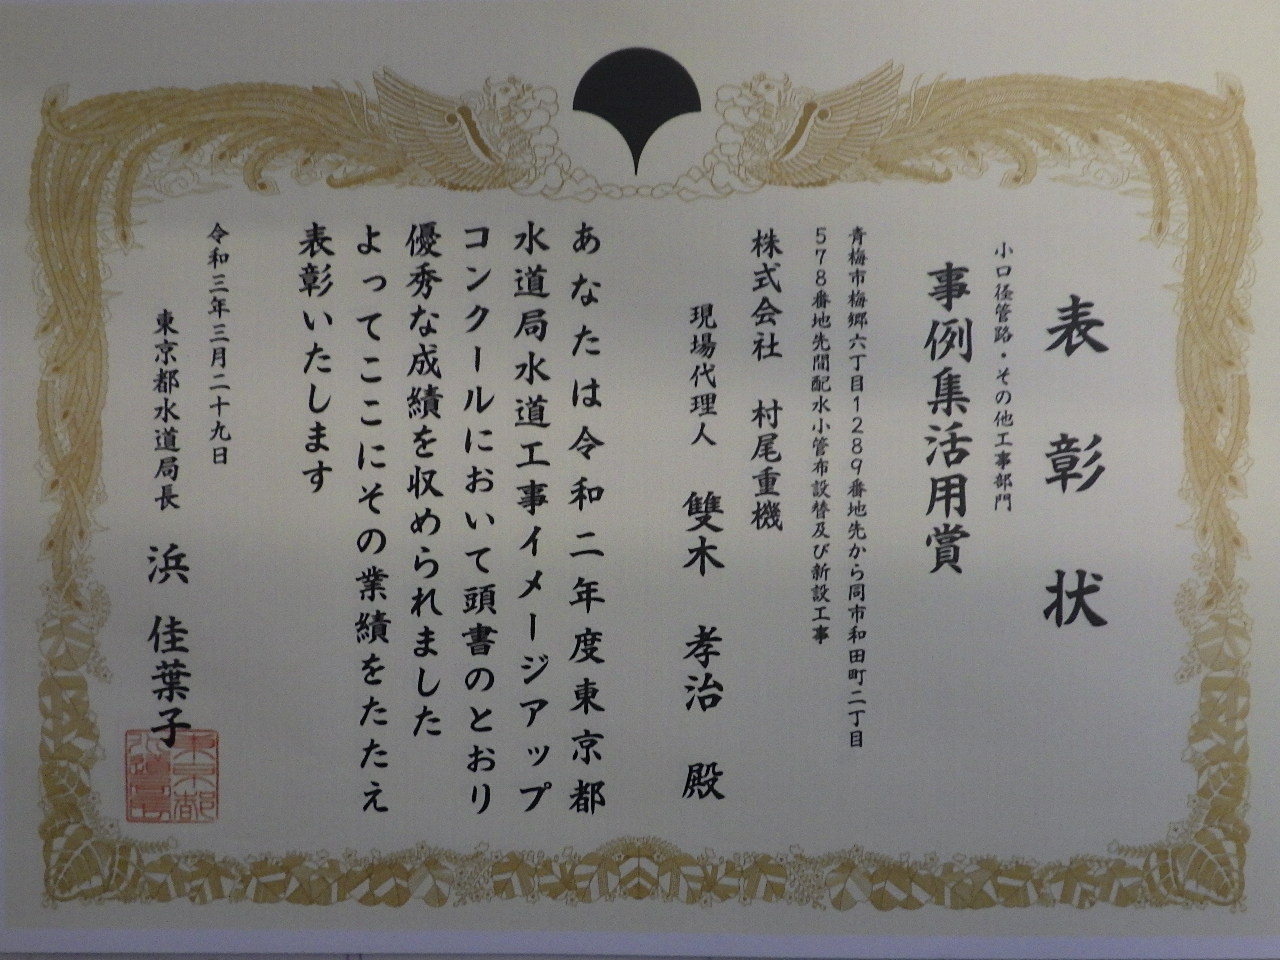 表彰状
小口径管路・その他工事部門
事例集活用賞
青梅市梅郷六丁目1289番地先から同市和田町二丁目
578番地先間配水小管布設替及び新設工事
株式会社 村尾重機
現場代理人 雙木 孝治 殿
あなたは令和二年度東京都
水道局水道工事イメージアップ
コンクールにおいて頭書のとおり
優秀な成績を収められました
よってここにその業績をたたえ
表彰いたします
令和三年三月二十九日
東京都水道局長 浜 佳葉子
東京都